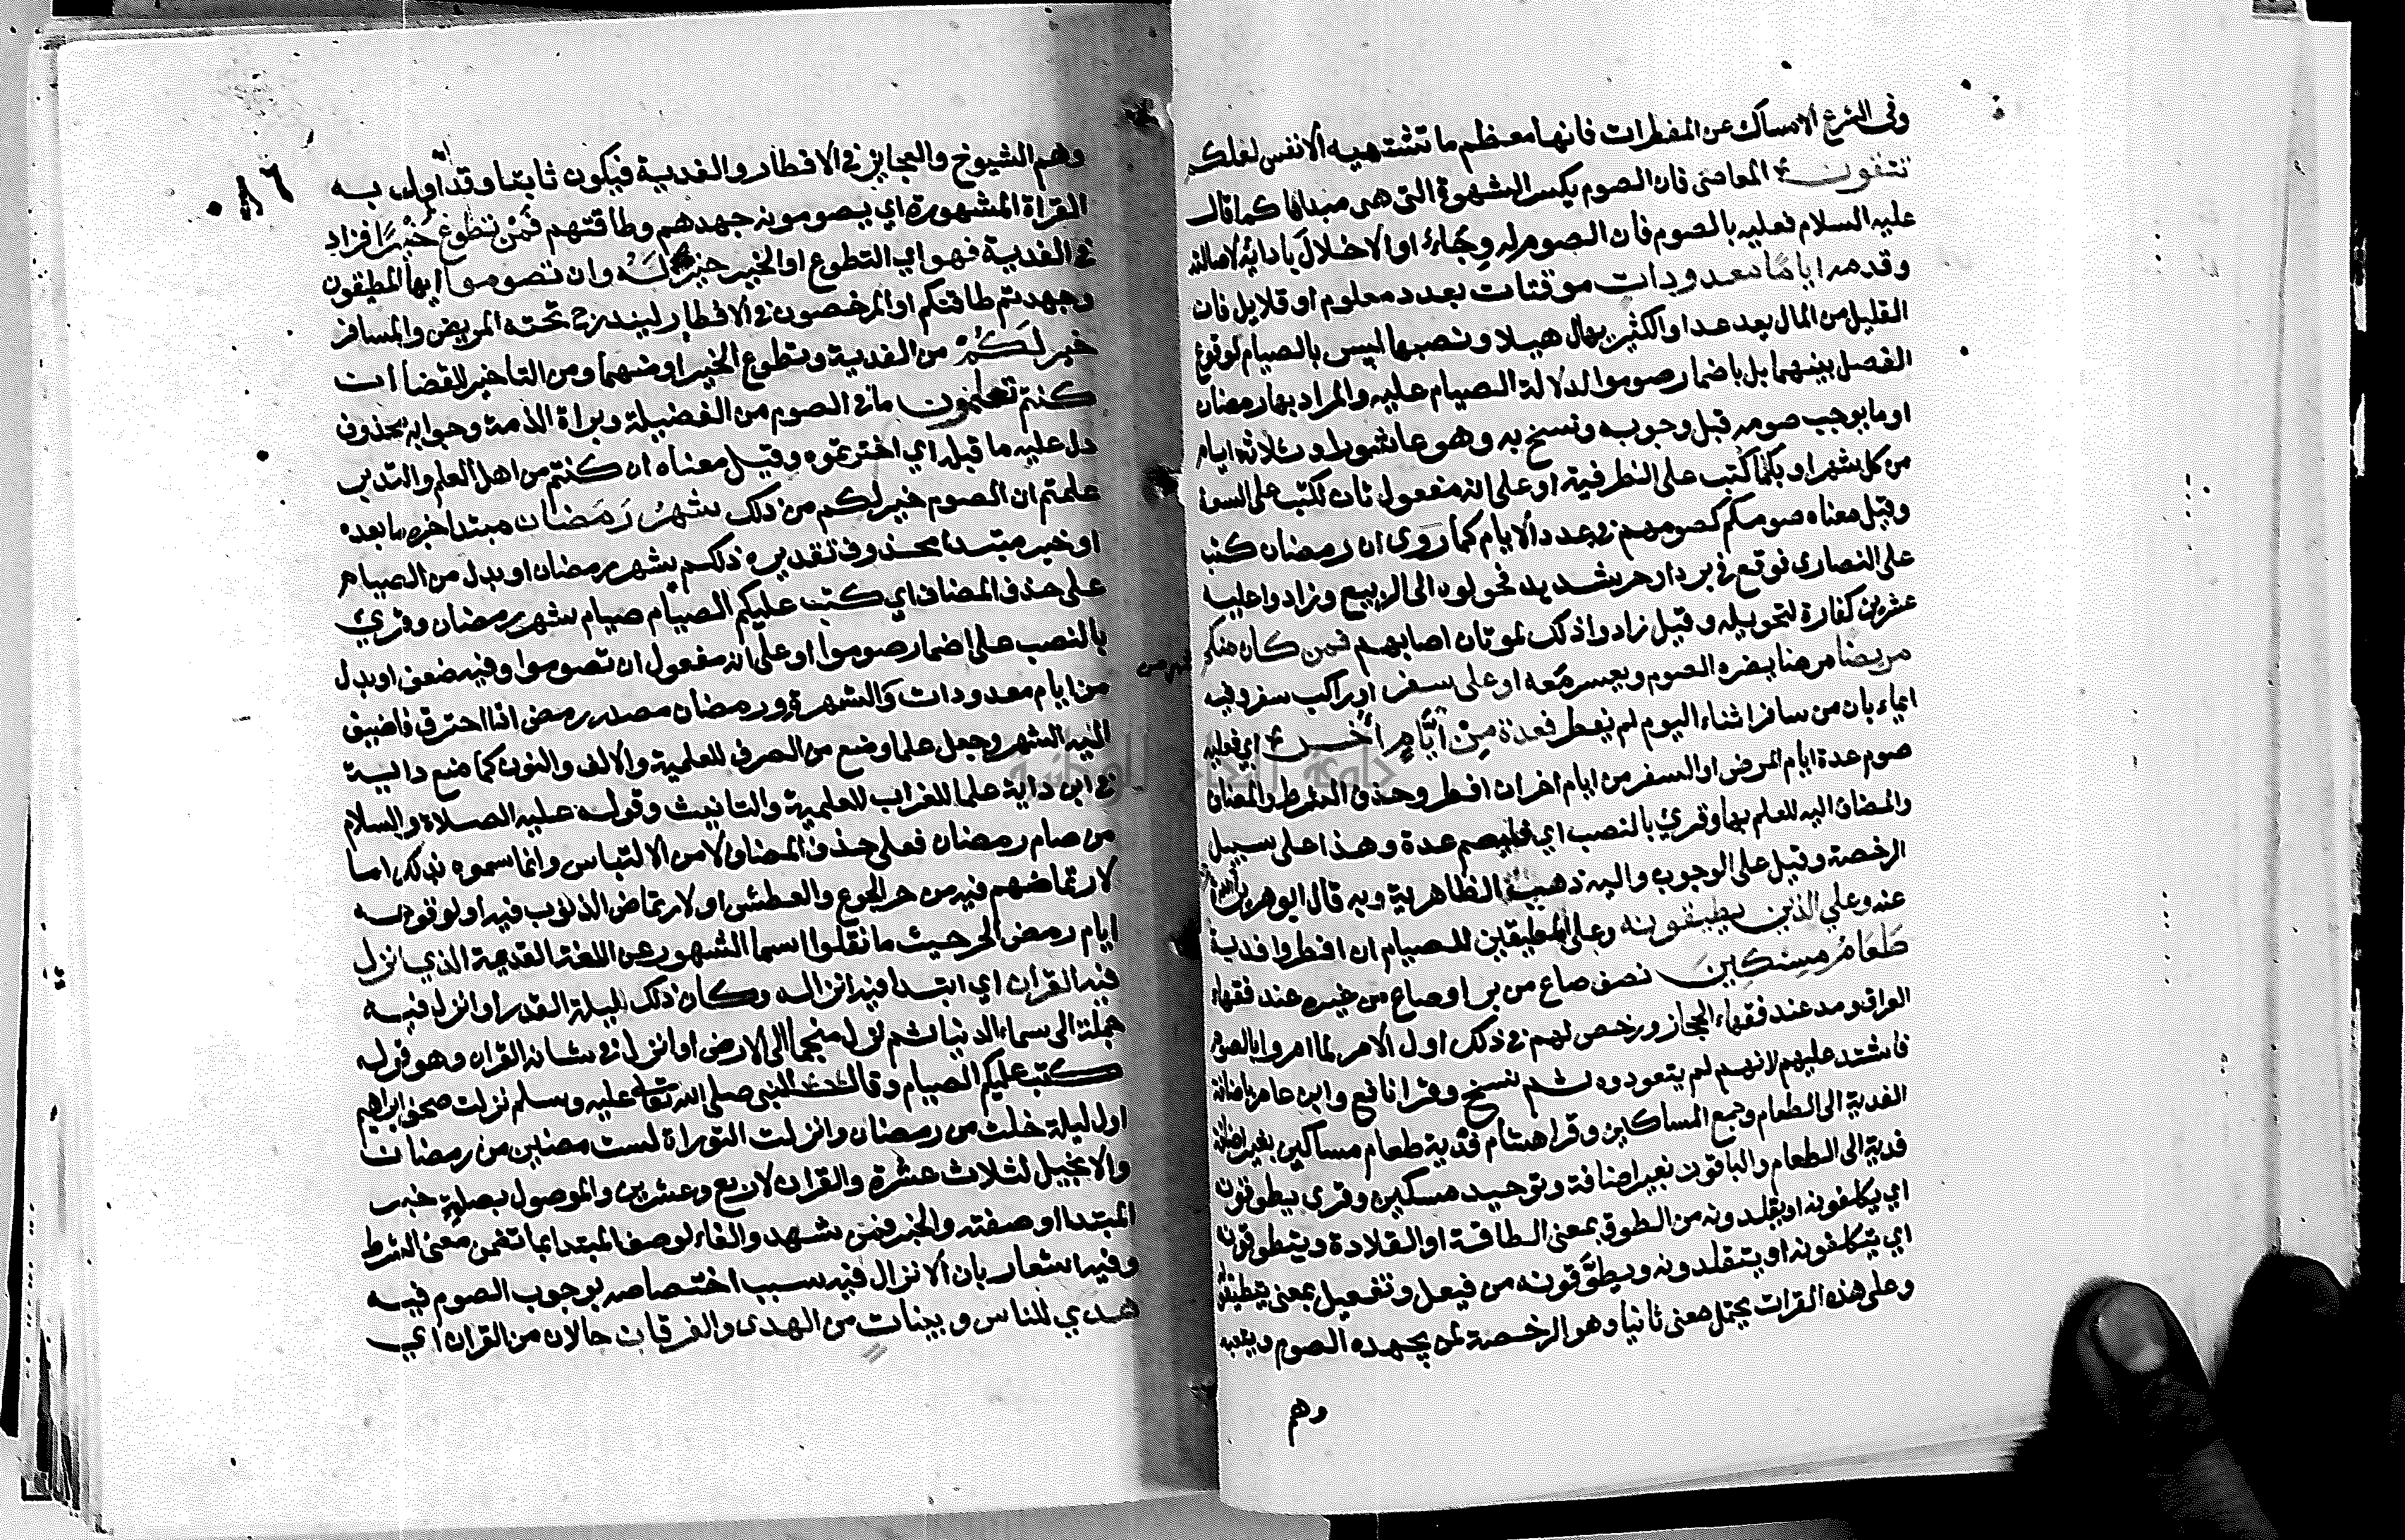 وفى الشرع الامساك عن المفطرات فانها معظم ما تشتهيه الانفس لعلكم
تتقون المعاصى فان الصوم يكسر الشهوة التى هى مبداها كما قال
عليه السلام فعليه بالصوم فان الصوم له وجاء او الاخلال بادائه لاصالته
وقدمه اياما معدودات موقتات بعدد معلوم او قلايل فان
القليل من المال يعد عدا والكثير يهال هيلا ونصبها ليس بالصيام لوقوع
الفصل بينهما بل باضمار صوموا لدلالة الصيام عليه والمراد بها رمضان
او ما يوجب صومه قبل وجوبه ونسخ به وهو عاشورا وثلاثة ايام
من كل شهر او بكما كتب على الظرفية او على انه مفعول ثان لكتب على السعة
وقيل معناه صومكم كصومهم فى عدد الايام كما روى ان رمضان كتب
على النصارى فوقع فى برد او حر شديد فحولوه الى الربيع وزادوا عليه
عشرين كفارة لتحويله وقيل زادوا ذلك لموتان اصابهم فمن كان منكم
مريضا مرضا يضره الصوم ويعسر معه او على سفر او راكب سفر وفيه
ايماء بان من سافر اثناء اليوم لم يفطر فعدة من ايام اخر اى فعليه
صوم عدة ايام المرض او السفر من ايام اخر ان افطر وحذف الشرط والمضاف
والمضاف اليه للعلم بها وقرئ بالنصب اى فليصم عدة وهذا على سبيل
الرخصة وقيل على الوجوب واليه ذهب الظاهرية وبه قال ابو هريرة
عنه وعلى الذين يطيقونه وعلى المطيقين للصيام ان افطروا فدية
طعام مسكين نصف صاع من بر او صاع من غيره عند فقهاء
العراق ومد عند فقهاء الحجاز ورخص لهم فى ذلك اول الامر لما امروا بالصوم
فاشتد عليهم لانهم لم يتعودوه ثم نسخ وقرا نافع وابن عامر باضافة
الفدية الى الطعام وجمع المساكين وقرا هشام فدية طعام مساكين بغير اضافة
فدية الى الطعام والباقون بغير اضافة وتوحيد مسكين وقرى يطوقونه
اي يكلفونه او يقلدونه من الطوق بمعنى الطاقة او القلادة ويتطوقونه
اي يتكلفونه او يتقلدونه ويطوقونه من فيعل وتفعيل بمعنى
وعلى هذه القرات يحتمل معنى ثانيا وهو الرخصة لمن يجهده الصوم ويتعبه
وهم
وهم الشيوخ والعجايز فى الافطار والفدية فيكون ثابتا وقد اول به
القراة المشهورة اي يصومونه جهدهم وطاقتهم فمن تطوع خيرا فزاد
فى الفدية فهو اي التطوع او الخير خير له وان تصوموا ايها المطيقون
وجهدتم طاقتكم او المرخصون فى الافطار ليندرج تحته المريض والمسافر
خير لكم من الفدية وتطوع الخير او منهما ومن التاخير للقضا ان
كنتم تعلمون ما فى الصوم من الفضيلة وبراة الذمة وجوابه محذوف
دل عليه ما قبله اي اخترتموه وقيل معناه ان كنتم من اهل العلم والتدبر
علمتم ان الصوم خير لكم من ذلك شهر رمضان مبتدا خبره ما بعده
او خبر مبتدا محذوف تقديره ذلكم شهر رمضان او بدل من الصيام
على حذف المضاف اي كتب عليكم الصيام صيام شهر رمضان وقرئ
بالنصب على اضمار صوموا او على انه مفعول ان تصوموا وفيه ضعف او بدل
من ايام معدودات والشهر من الشهرة ورمضان مصدر رمض اذا احترق فاضيف
اليه الشهر وجعل علما ومنع من الصرف للعلمية والالف والنون كما منع داية
فى ابن داية علما للغراب للعلمية والتانيث وقوله عليه الصلاة والسلام
من صام رمضان فعلى حذف المضاف لامن الالتباس وانما سموه بذلك اما
لارتماضهم فيه من حر الجوع والعطش او لارتماض الذنوب فيه او لوقوعه
ايام رمض الحر حيث ما نقلوا اسما الشهور عن اللغة القديمة الذي انزل
فيه القران اي ابتدا فيه انزاله وكان ذلك ليلة القدر او انزل فيه
جملة الى سماء الدنيا ثم نزل منجما الى الارض او انزل فى شانه القران وهو قوله
كتب عليكم الصيام وقال النبى صلى الله تعالى عليه وسلم نزلت صحف ابراهيم
اول ليلة خلت من رمضان وانزلت التوراة لست مضين من رمضان
والانجيل لثلاث عشرة والقران لاربع وعشرين والموصول بصلته خبر
المبتدا او صفته والخبر فمن شهد والفاء لوصف المبتدا بما تضمن معنى الشرط
وفيه اشعار بان الانزال فيه سبب اختصاصه بوجوب الصوم فيه
هدي للناس وبينات من الهدى والفرقان حالان من القران اي